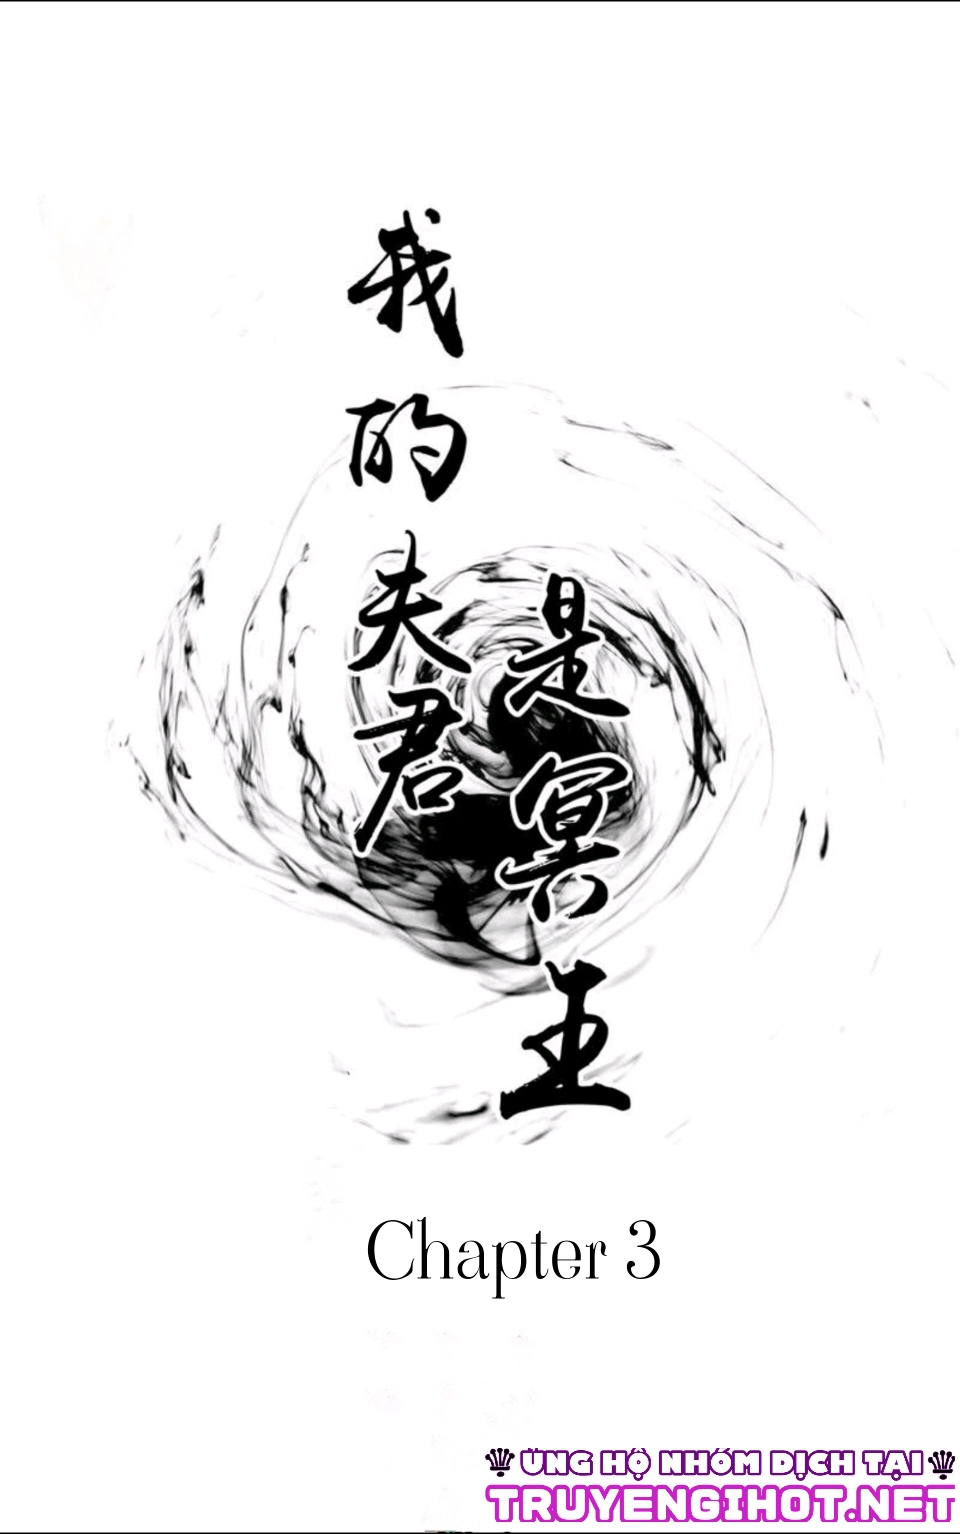 我的夫君
是冥王
Chapter 3
ỦNG HỘ NHÓM DỊCH TẠI
TRUYENGIHOT.NET